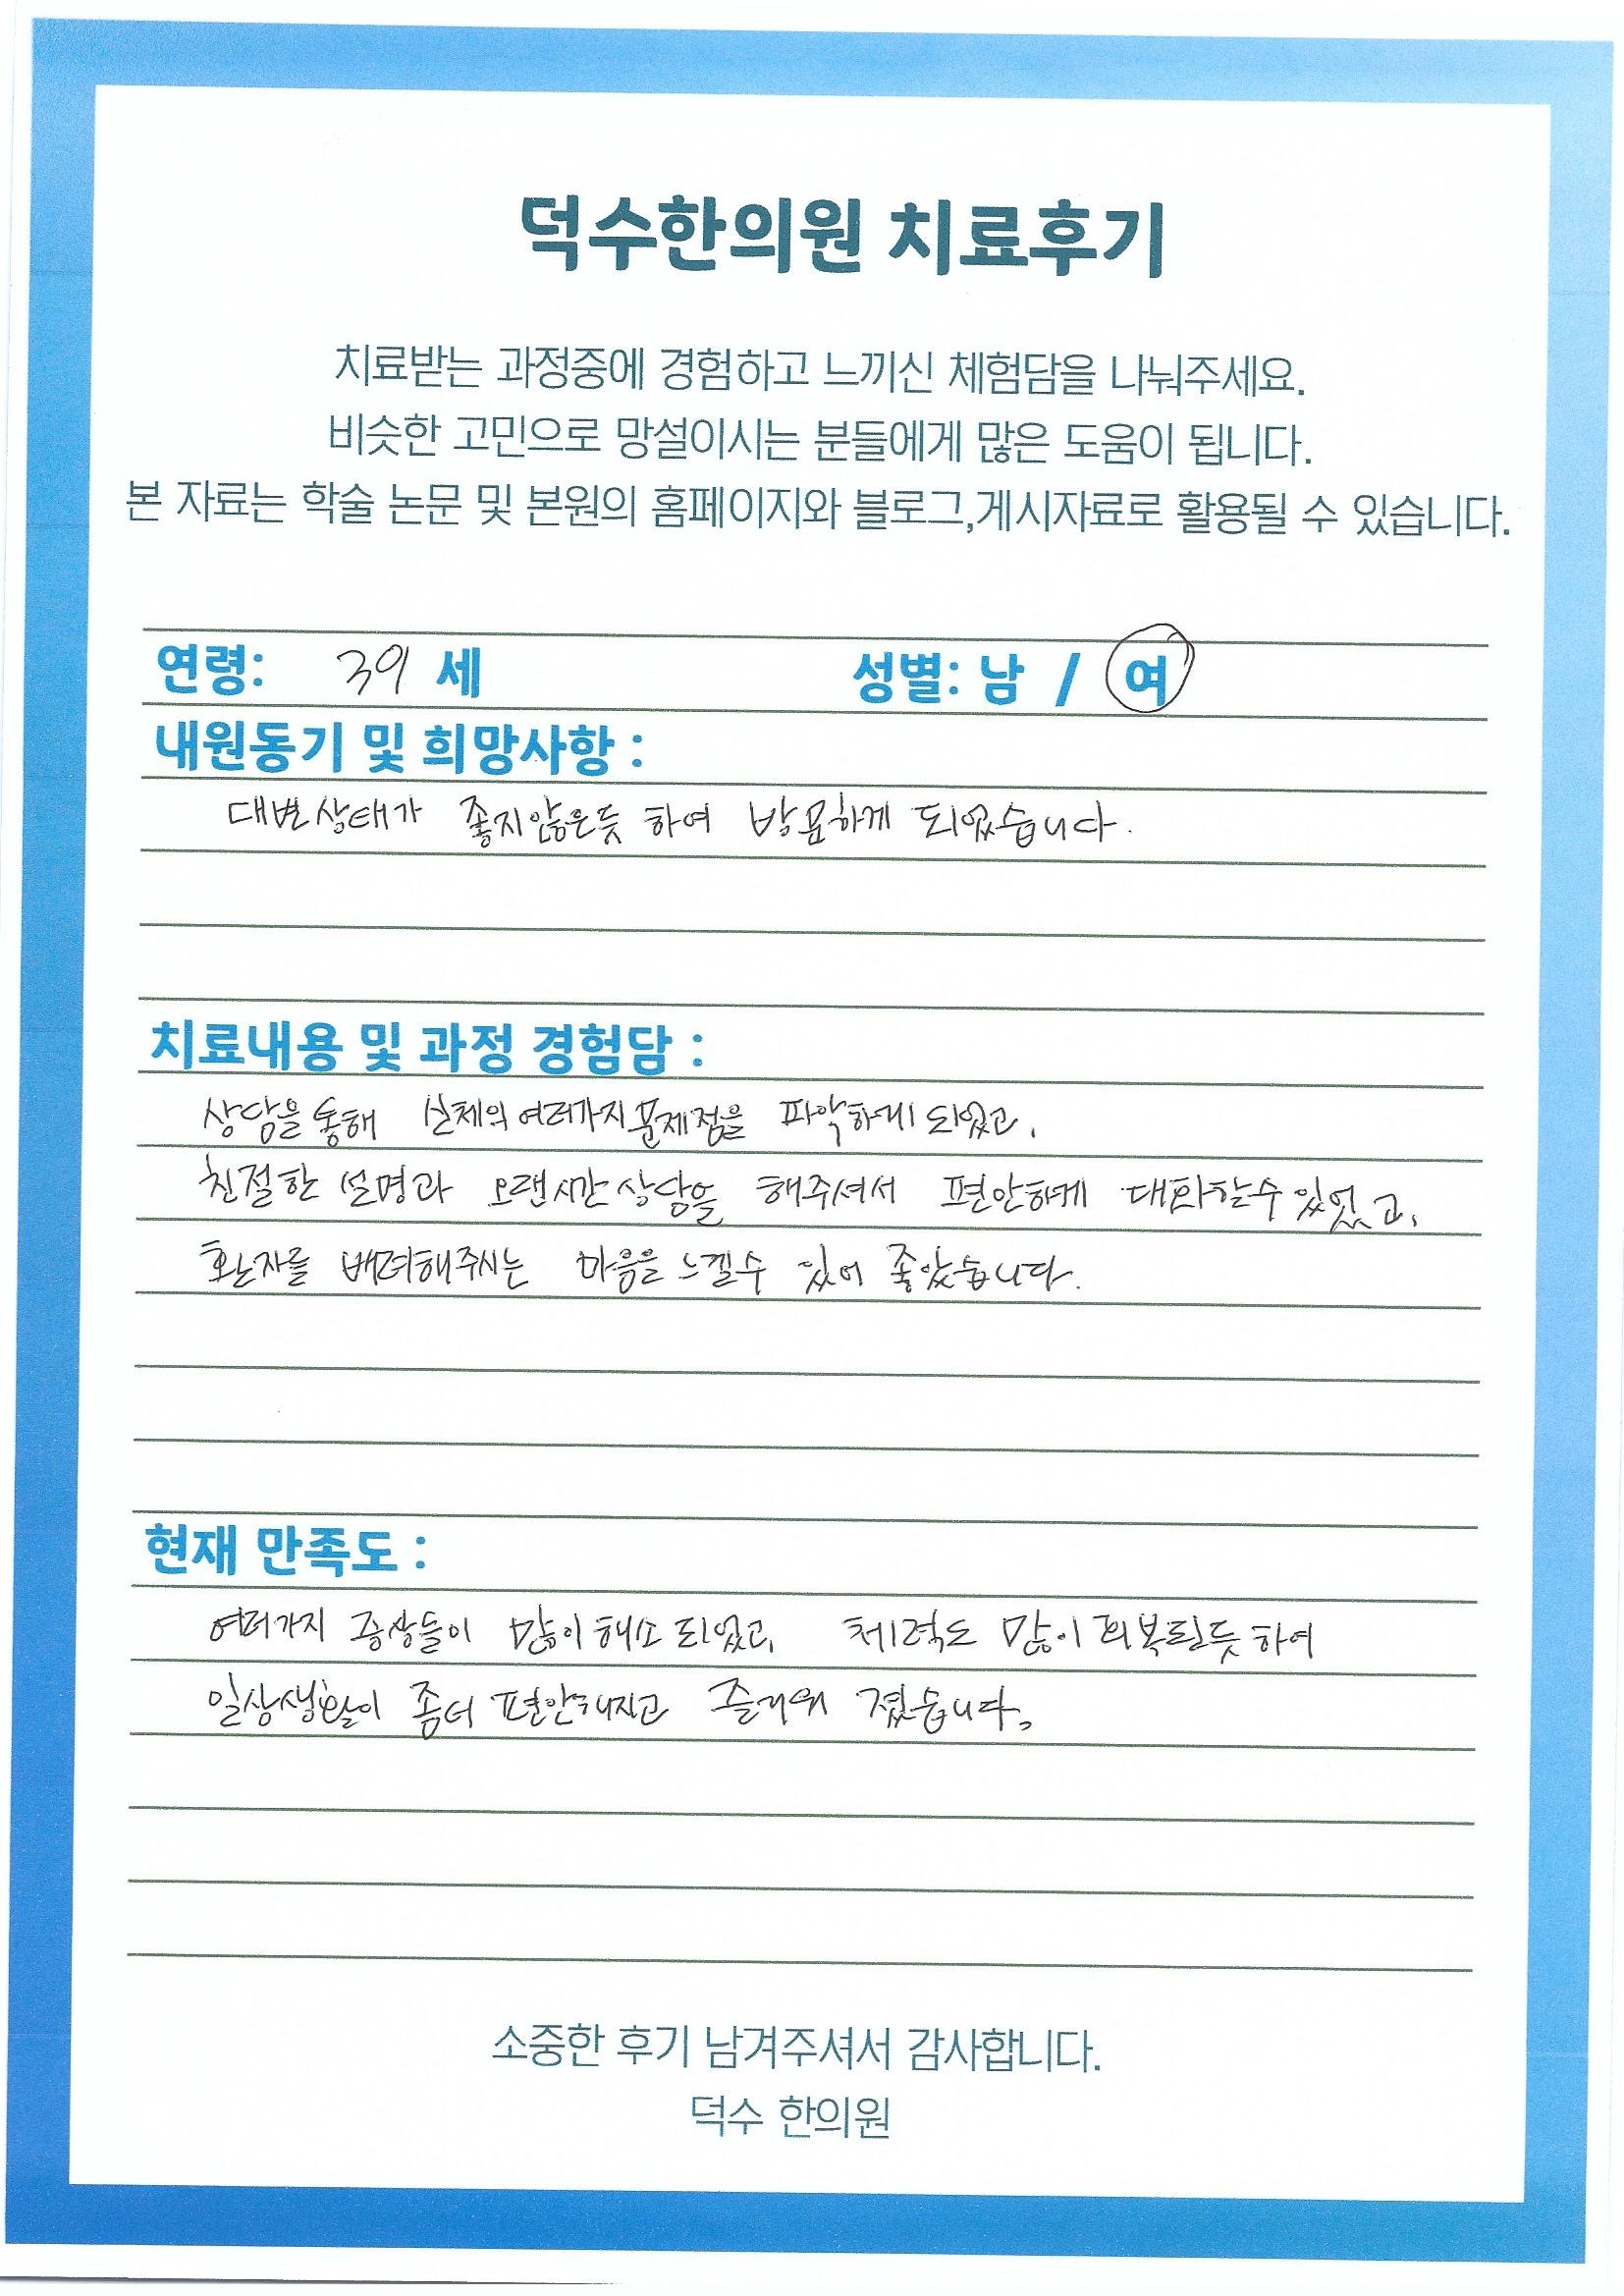 덕수한의원 치료후기
치료받는 과정중에 경험하고 느끼신 체험담을 나눠주세요.
비슷한 고민으로 망설이시는 분들에게 많은 도움이 됩니다.
본 자료는 학술 논문 및 본원의 홈페이지와 블로그,게시자료로 활용될 수 있습니다.
연령: 39 세 성별: 남 / 여
내원동기 및 희망사항 :
대변상태가 좋지않은듯 하여 방문하게 되었습니다.
치료내용 및 과정 경험담 :
상담을 통해 신체의 여러가지 문제점을 파악하게 되었고,
친절한 설명과 오랜시간 상담을 해주셔서 편안하게 대화할수 있었고,
환자를 배려해주시는 마음을 느낄수 있어 좋았습니다.
현재 만족도 :
여러가지 증상들이 많이 해소 되었고, 체력도 많이 회복된듯 하여
일상생활이 좀더 편안해지고 즐거워 졌습니다.
소중한 후기 남겨주셔서 감사합니다.
덕수 한의원